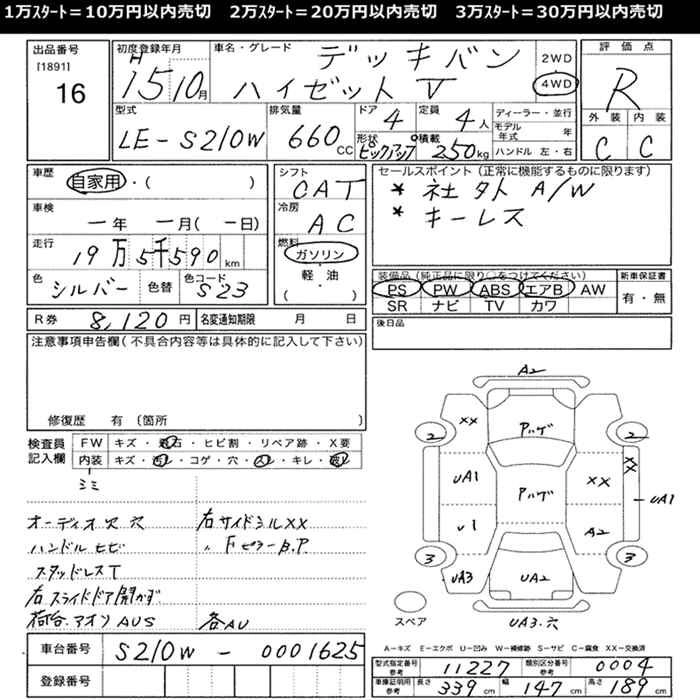 1万スタート＝10万円以内売切　2万スタート＝20万円以内売切　3万スタート＝30万円以内売切
出品番号
[1891]
16
初度登録年月
H
15 10月
車名・グレード
デッキバン
ハイゼット V
2WD
4WD
評価点
R
外装 内装
C C
型式
LE-S210W
排気量
660 CC
ドア 4
形状 ピックアップ
定員 4人
積載 250kg
ディーラー・並行
モデル年式 年
ハンドル 左・右
車歴
自家用・( )
車検
一年 一月(一日)
走行
19万5千590km
色
シルバー
色替
色コード
S23
シフト
CAT
冷房
AC
燃料
ガソリン
軽・油
( )
セールスポイント(正常に機能するものに限ります)
* 社外 A/W
* キーレス
装備品(純正品に限り○をつけてください)
PS PW ABS エアB AW
SR ナビ TV カワ
新車保証書
有・無
R券 8,120円
名変通知期限 月 日
後日品
注意事項申告欄(不具合内容等は具体的に記入して下さい)
修復歴 有 (箇所 )
検査員記入欄
FW キズ・飛石・ヒビ割・リペア跡・X要
内装 キズ・汚レ・コゲ・穴・スレ・キレ・破レ
ミミ
オーディオ穴 穴
ハンドル ヒビ
スタッドレスT
右スライドドア開かず
荷台.アオリ AUS
右サイドシルXX
〃 Fピラー B.P
各AU
A2
XX
Pハゲ
2
2
XX
UA1
Pハゲ
XX
UA1
U1
A2
3
3
UA3
UA2
UA3.穴
スペア
A−キズ E−エクボ U−凹み W−補修跡 S−サビ C−腐食 XX−交換済
車台番号
S210W - 0001625
登録番号
型式指定番号 参考
11227
類別区分番号 参考
0004
車庫証明用 参考
長さ 339cm
幅 147cm
高さ 189cm